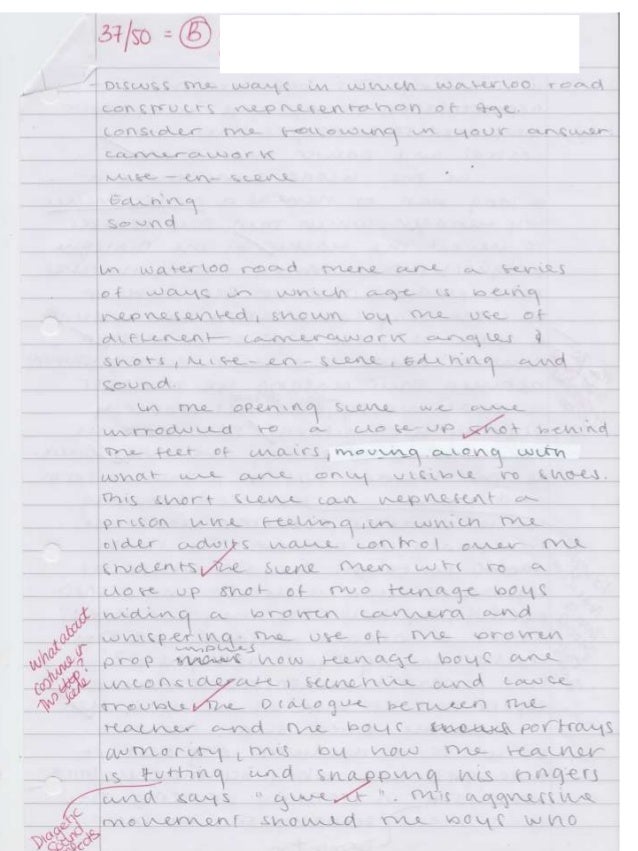 37/50 = B
Discuss the ways in which waterloo road
constructs representation of Age.
Consider the following in your answer
camerawork
Mise-en-scene
Editing
Sound
In waterloo road there are a series
of ways in which age is being
represented, shown by the use of
different camerawork angles &
shots, Mise-en-scene, Editing and
sound.
In the opening scene we are
introduced to a close-up shot behind
the feet of chairs, moving along with
what we are only visible to shoes.
This short scene can represent a
prison like feeling, in which the
older adults have control over the
students, the scene then cuts to a
close up shot of two teenage boys
hiding a broken camera and
whispering. The use of the broken
prop implies how teenage boys are
inconsiderate, secretive and cause
trouble. The Dialogue between the
teacher and the boys portrays
authority, this by how the teacher
is tutting and snapping his fingers
and says "give it". This aggressive
movement showed the boys who
What about
costume in
this
scene
Diagetic
Sound